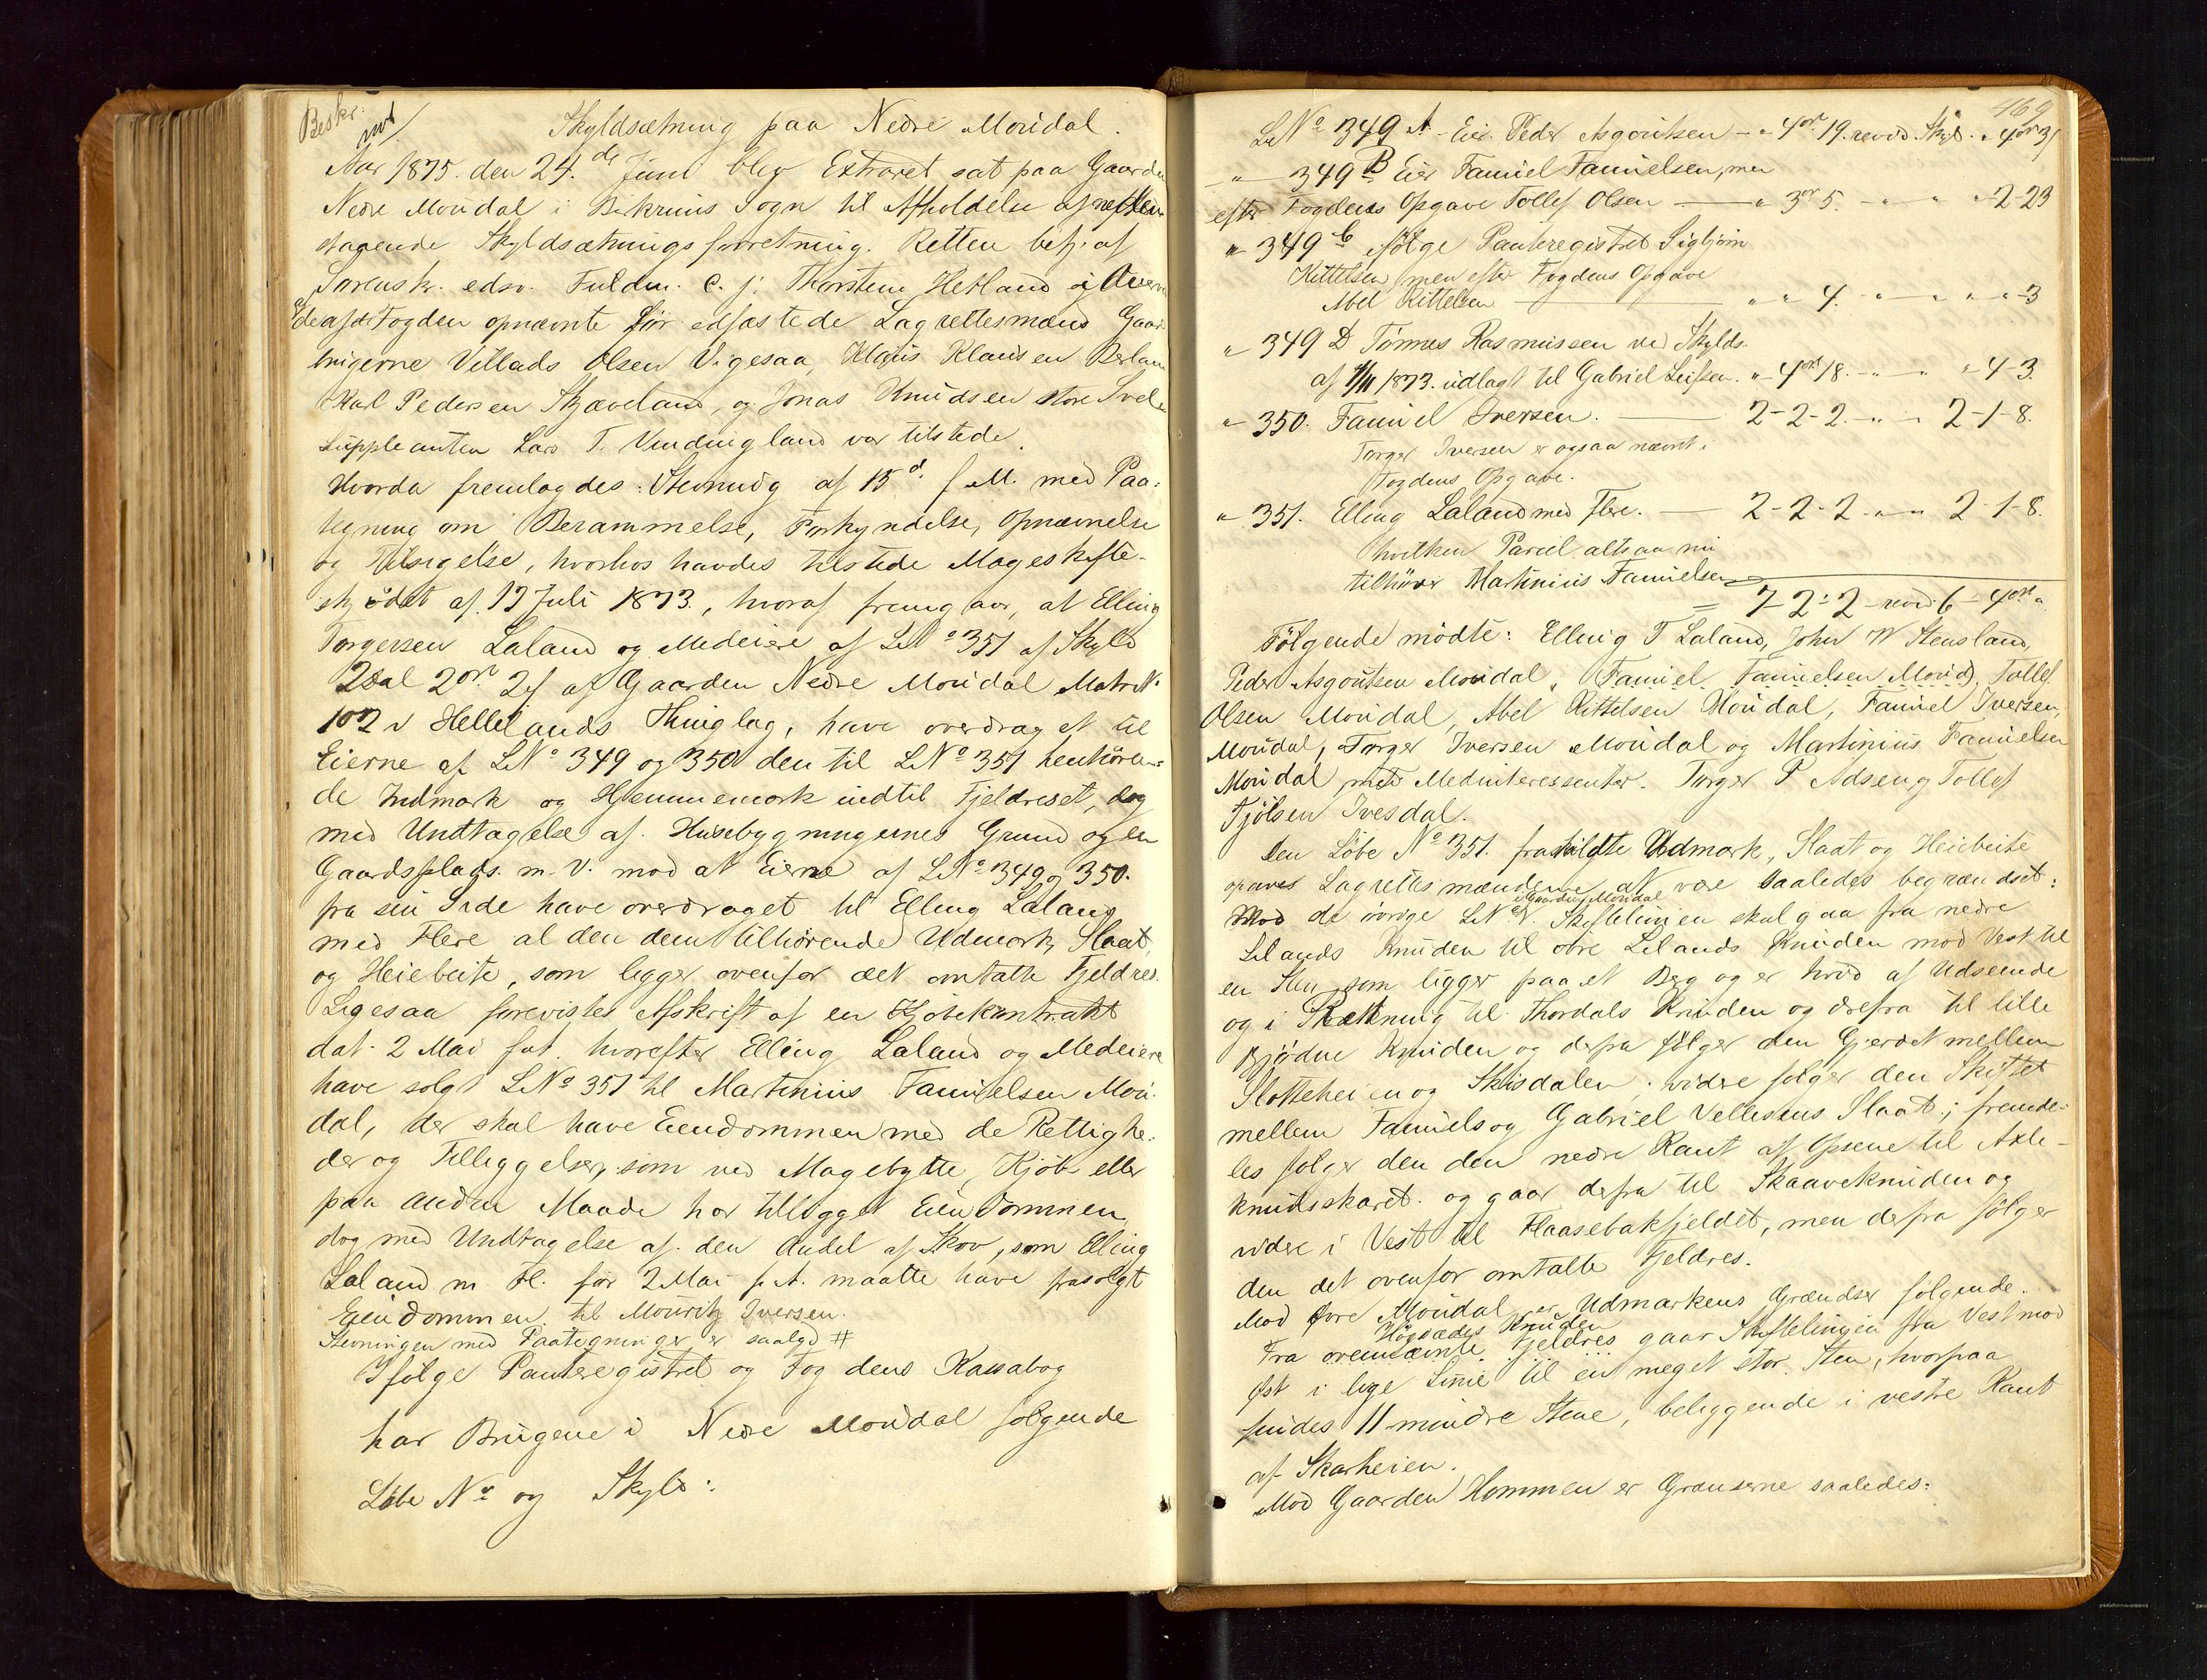 Beskr.
Skyldsætning paa Nedre Moridal.
Aar 1875. den 24.de Juni blev Extraret sat paa Gaarden
Nedre Moridal i Bjerkrims Sogn til Afholdelse af neden
staaende Skyldsætningsforretning. Retten betj. af
Sorensk. edsv. Fuldm. C. J. Thorstein Hetland og
de af Fogden opnævnte før edfæstede Lagrettesmænd Gaard
brugerne Villads Olsen Vigesaa, Klaus Klausen
Karl Pedersen Skjæveland, og Jonas Knudsen store Svela
Suppleanten Lars T. Vindingland var tilstede.
Hvorda fremlagdes: Stevning af 15d. f. M. med Paa-
tegning om Berammelse, Forkyndelse, Opnævnelse
og Tilsigelse, hvorhos havdes tilstede Mageskifte-
skjødet af 17 Juli 1873., hvoraf fremgaar, at Elling
Torgersen Laland og Medeiere af LNo 351 af Skyld
2 Dal 2ort 2 af Gaarden Nedre Moridal MatrN.
102 i Hellelands Thinglag, have overdraget til
Eierne af LNo 349 og 350 den til LNo 351 henhøren-
de Indmark og Hjemmemark indtil Fjeldreset, dog
med Undtagelse af Husebygningernes Grund og en
Gaardsplads. m. V. mod at Eierne af LNo 349 og 350.
fra sin Side have overdraget til Elling Laland
med Flere al den dem tilhørende Udmark, Slaat
og Heiebeite, som ligger ovenfor det omtalte Fjeldres.
Ligesaa forevistes Afskrift af en Kjøbekontrakt
dat. 2 Mai hvorefter Elling Laland og Medeiere
have solgt LNo 351 til Martinius Tanielsen Mori-
dal, der skal have Eiendommen med de Rettighe-
der og Tilleggelser, som ved Magebytte, Kjøb eller
paa anden Maade har tillagget Eiendommen,
dog med Undtagelse af den Andel af Skov, som Elling
Laland m Fl. før 2 Mai f. A. maatte have frasolgt
Eiendommen til Mouritz Iversen.
Stevningen med Paategninger er saalyd #
Ifølge Panteregistret og Fogdens Kassabog
har Brugene i Nedre Moridal følgende
Løbe No og Skyld:
469
LNo 349 A - Eier Peder Asgoutsen - " 4ort 19. revid. Skyld. " 4ort 3
" 349 B Eier Taniel Tanielsen, men
efter Fogdens Opgave Tollef Olsen — " 3ort 5. - " " 2-23
" 349 C ifølge Panteregistret Sigbjørn
Kittelsen, men efter Fogdens Opgave
Abel Kittelsen — " " 4. " " " " 3
" 349 D Tønnes Rasmussen ved Skylds.
af 4/11 1873. udlagt til Gabriel Leifsen. " 4ort 18. " " " 4-3.
" 350. Taniel Iversen. — 2-2-2. " " 2-1-8.
Torger Iversen er ogsaa nævnt i
Fogdens Opgave.
" 351. Elling Laland med Flere. — 2-2-2. " " 2-1-8.
hvilken Parcel altsaa nu
tilhører Martinius Tanielsen
= 7-2-2 revid. 6-4ort "
Følgende mødte: Elling T Laland, John W Stensland,
Peder Asgoutsen Moridal, Taniel Tanielsen Morid, Tollef
Olsen Moridal, Abel Kittelsen Moridal, Taniel Iversen,
Moridal, Torger Iversen Moridal og Martinius Tanielsen
Moridal med Medinteressenter. Torger P Adsen og Tollef
Tjølsen Ivesdal.
Den Løbe No 351. fraskildte Udmark, Slaat og Heiebeite
opgaves Lagrettesmændene at være saaledes begrændset:
i Gaarden Moridal
Mod de øvrige LNo. Skiftelinien skal gaa fra nedre
Lilands Knuden til øvre Lilands Knuden mod Vest til
en Sten, som ligger paa et Berg og er hvid af Udseende
og i Rætning til Thordals Knuden og derfra til lille
Bjødne Knuden og derfra følger den Gjerdet mellem
Slotteheien og Skisdalen; videre følger den Skillet
mellem Taniels og Gabriel Vellesens Slaat; fremde-
les følger den den nedre Kant af Opsene til Axle-
knudsskaret. og gaar derfra til Skaaveknuden og
videre i Vest til Flaasebakfjeldet, men derfra følger
den det ovenfor omtalte Fjeldres.
Mod Øvre Moridal er Udmarkens Grændser følgende.
Knuden
Fra ovennævnte Fjeldres gaar Skiftelingen fra Vest mod
Øst i lige Linie til en meget stor Sten, hvorpaa
findes 11 mindre Stene, beliggende i vestre Kant
af Skarheien.
Mod Gaarden Hommen er Grænserne saaledes: